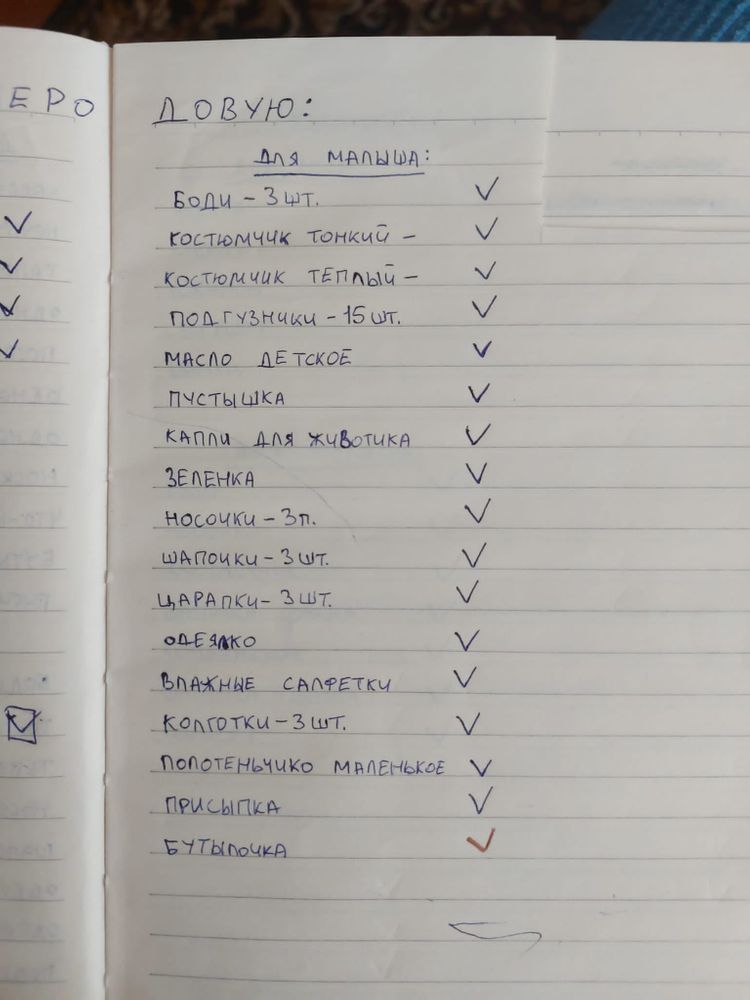 ЕРО ДОВУЮ:
ДЛЯ МАЛЫША:
БОДИ – 3 ШТ. ✓
КОСТЮМЧИК ТОНКИЙ – ✓
КОСТЮМЧИК ТЕПЛЫЙ – ✓
ПОДГУЗНИКИ – 15 ШТ. ✓
МАСЛО ДЕТСКОЕ ✓
ПУСТЫШКА ✓
КАПЛИ ДЛЯ ЖИВОТИКА ✓
ЗЕЛЕНКА ✓
НОСОЧКИ – 3 П. ✓
ШАПОЧКИ – 3 ШТ. ✓
ЦАРАПКИ – 3 ШТ. ✓
ОДЕЯЛКО ✓
ВЛАЖНЫЕ САЛФЕТКИ ✓
КОЛГОТКИ – 3 ШТ. ✓
ПОЛОТЕНЬЧИКО МАЛЕНЬКОЕ ✓
ПРИСЫПКА ✓
БУТЫЛОЧКА ✓